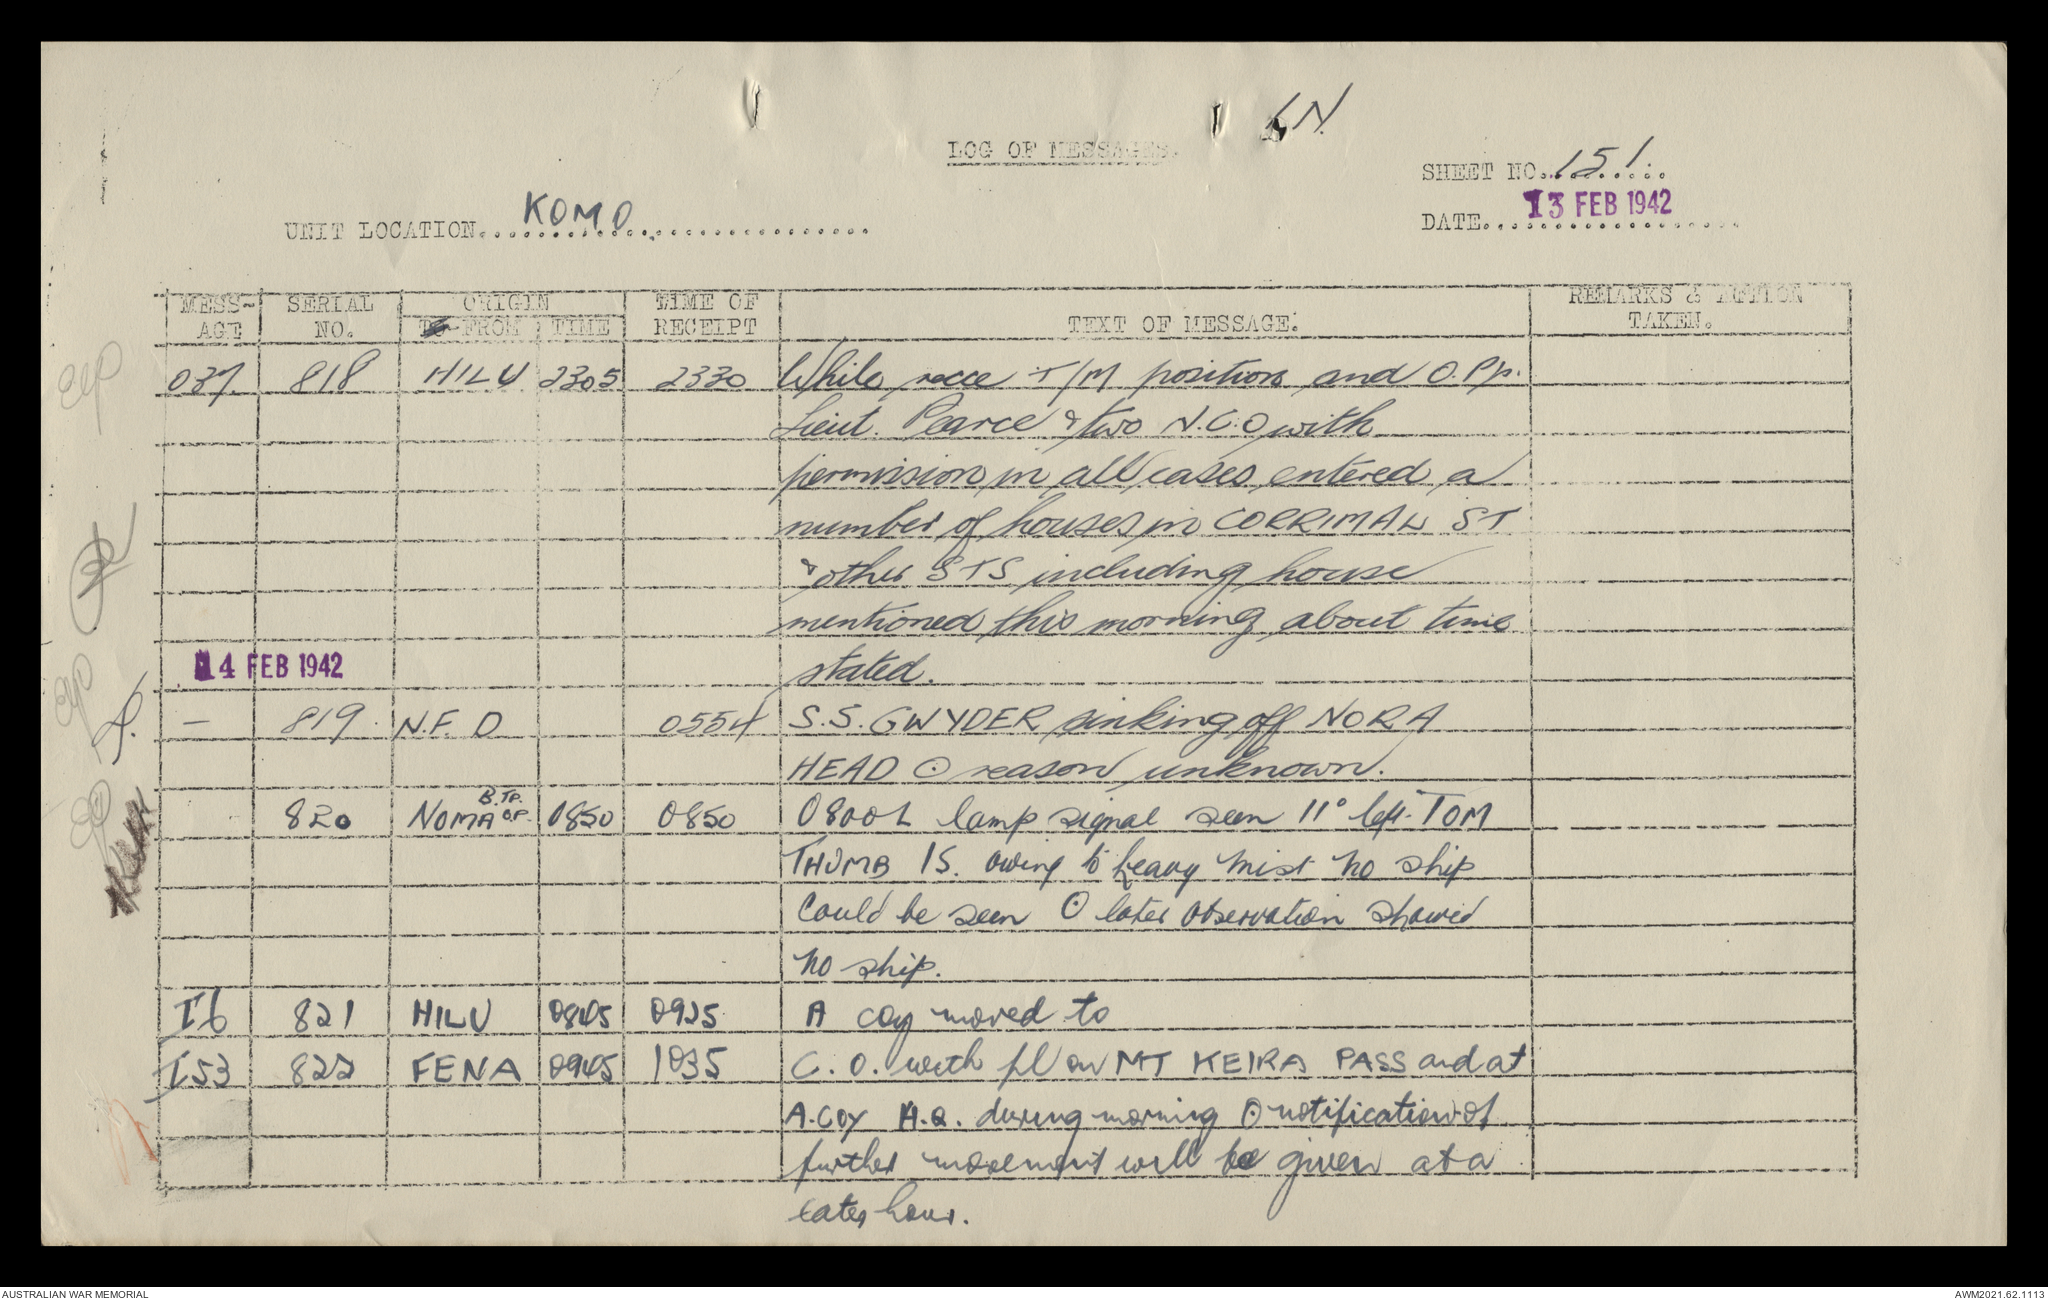 LN.
LOG OF MESSAGES.
SHEET NO. 151.
13 FEB 1942
UNIT LOCATION KOMO.
DATE
MESS- SERIAL ORIGIN TIME OF REMARKS & ACTION
AGE NO. TO FROM TIME RECEIPT TEXT OF MESSAGE. TAKEN.
037. 818 HILU 2305 2330 While recce T/M positions and O.Pp.
Lieut. Pearce & two N.C.O with
permission in all cases entered a
number of houses in CORRIMAL ST
& other STS including house
mentioned this morning about time
14 FEB 1942 stated.
— 819. N.F.D 0554 S.S. GWYDER sinking off NORA
HEAD ⊙ reason unknown.
820 NOMA B.TP. O.P. 0850 0850 0800L lamp signal seen 11° left TOM
THUMB IS. owing to heavy mist no ship
could be seen ⊙ later observation showed
no ship.
I6 821 HILU 0845 0925 A coy moved to
I53 822 FENA 0945 1035 C.O. with pl on MT KEIRA PASS and at
A.COY H.Q. during morning ⊙ notification of
further movement will be given at a
later hour.
AUSTRALIAN WAR MEMORIAL AWM2021.62.1113